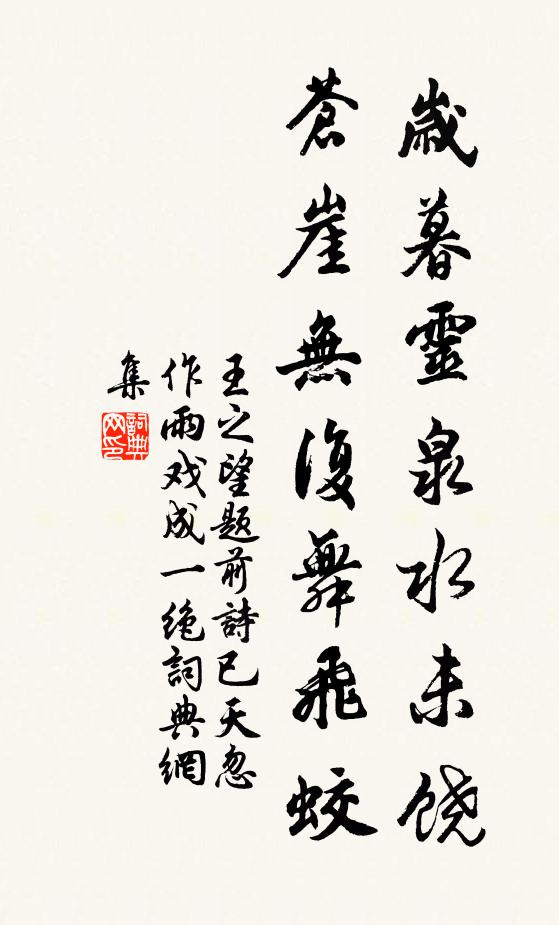 歲暮靈泉水未饒
蒼崖無復舞飛蛟
王之望題前詩已天忽
作雨戏成一绝詞典網
集
詞典
网印